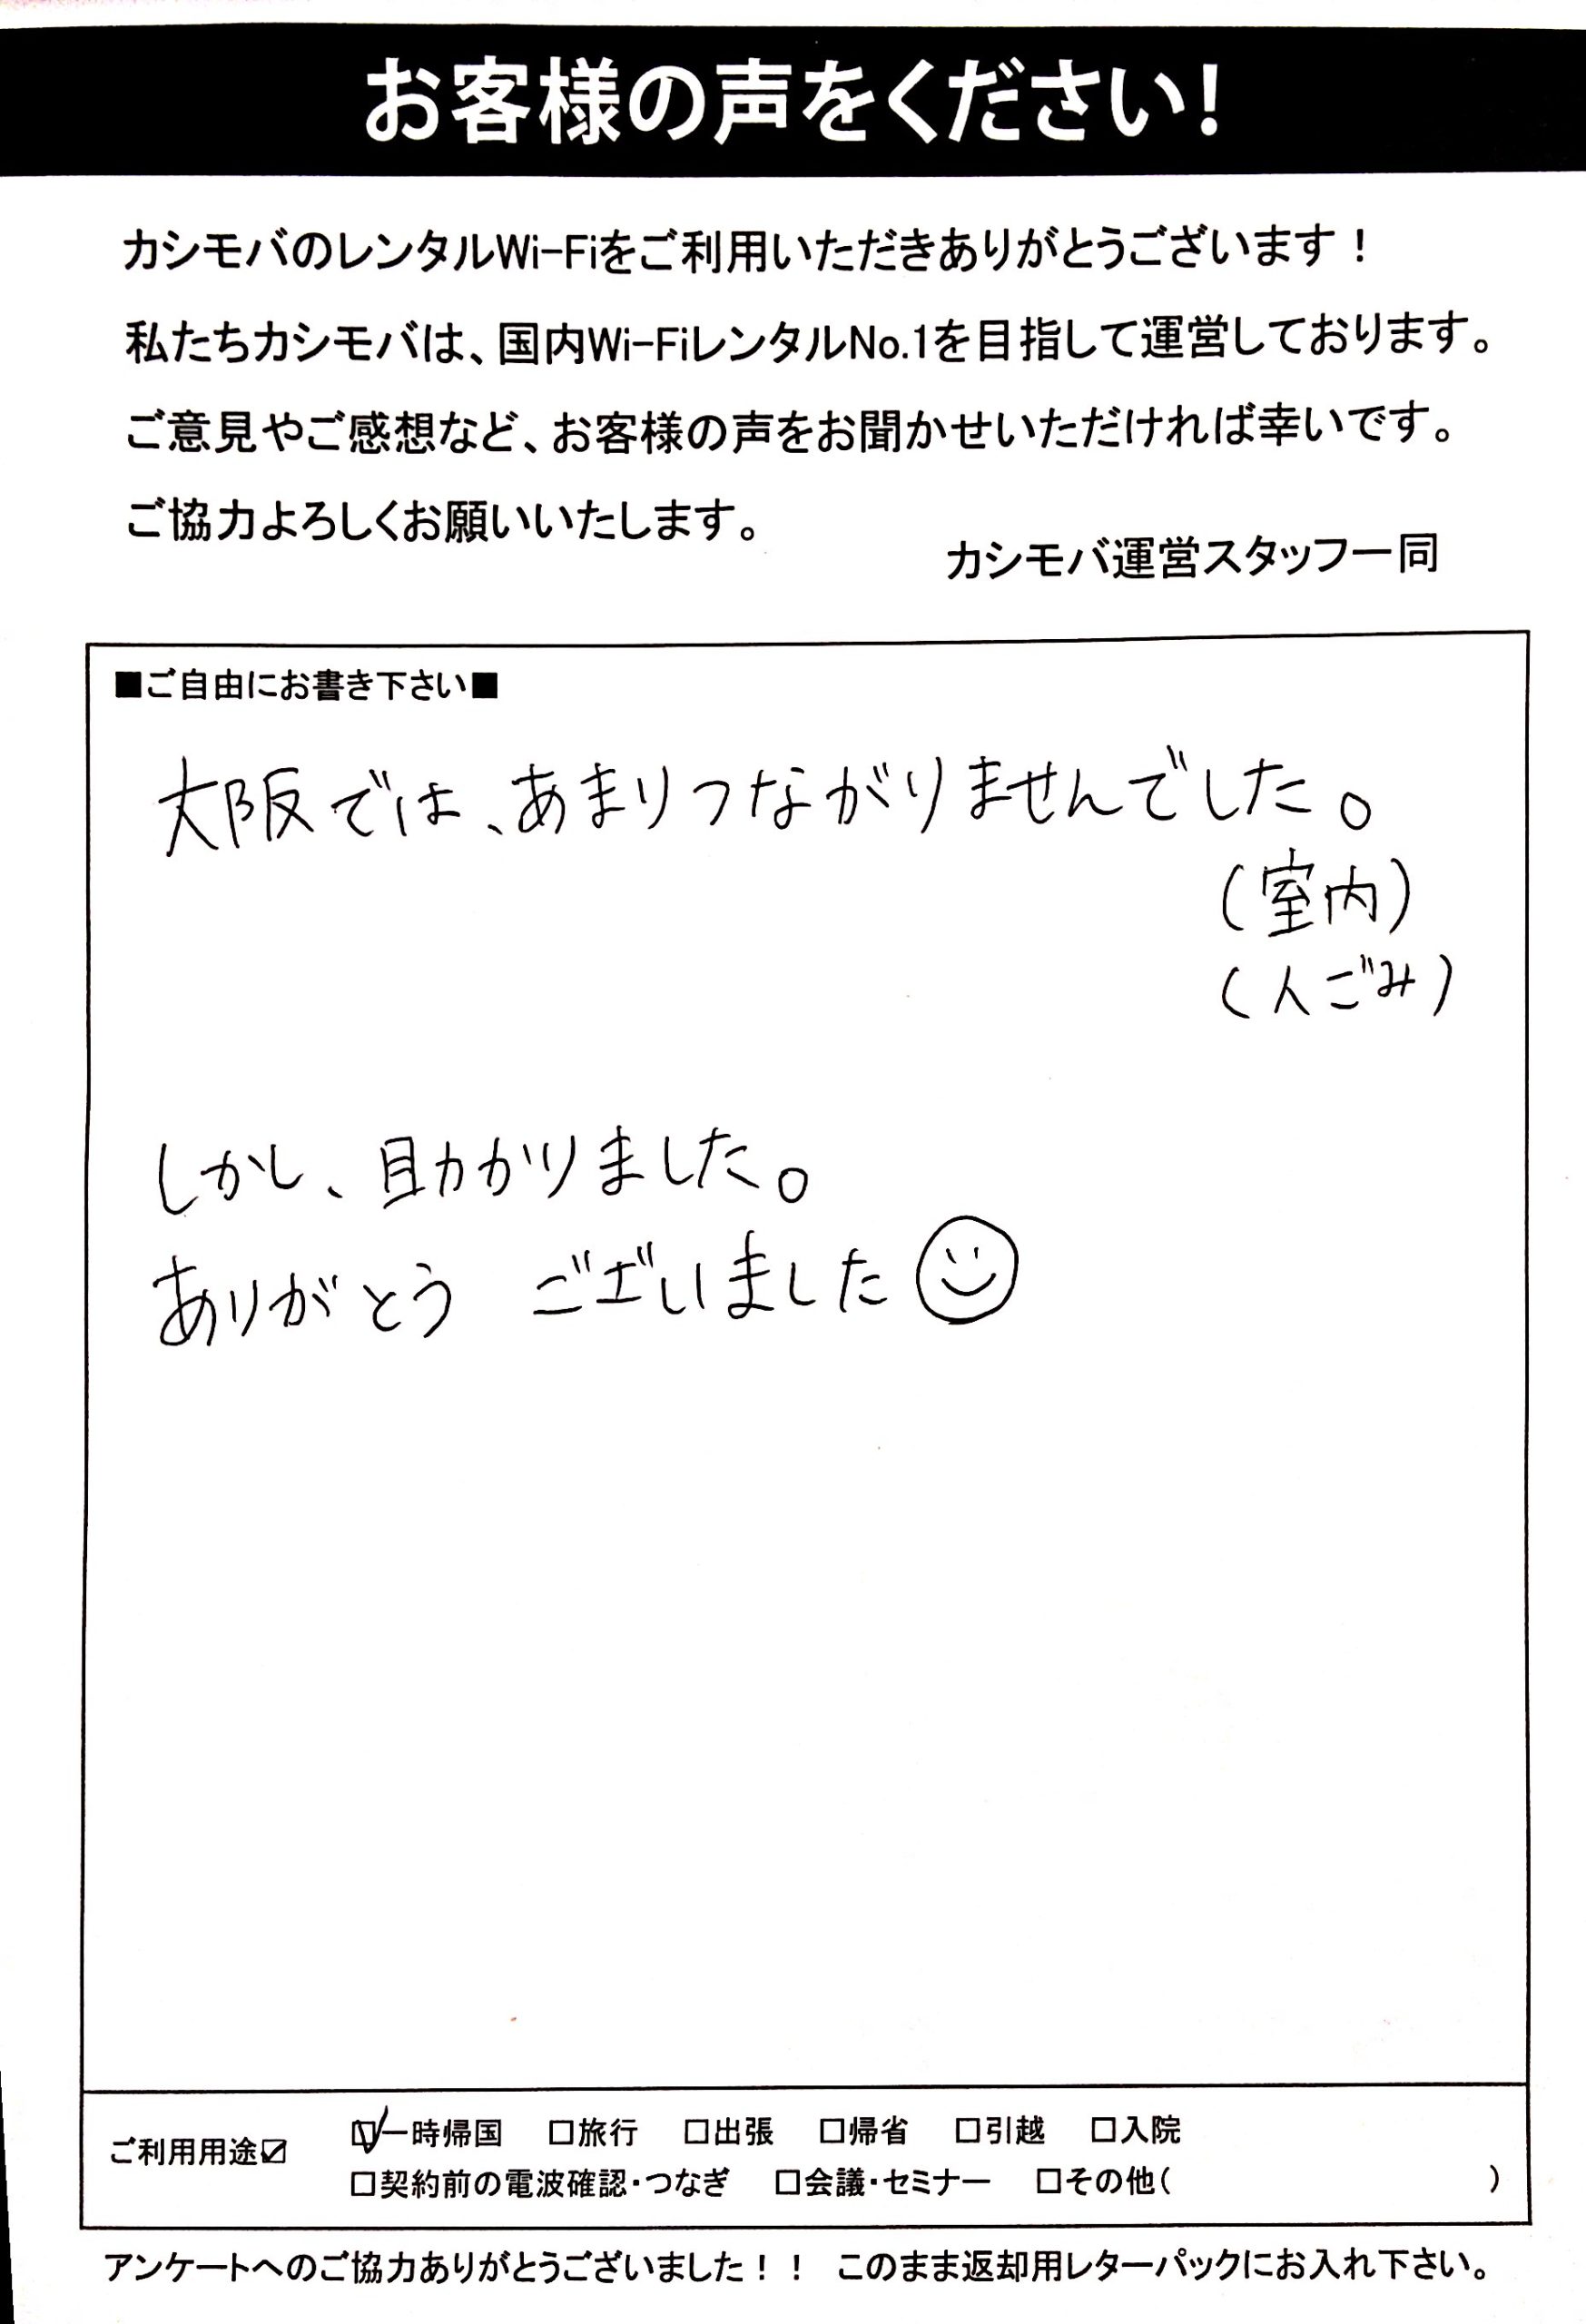 お客様の声をください!
カシモバのレンタルWi-Fiをご利用いただきありがとうございます！
私たちカシモバは、国内Wi-FiレンタルNo.1を目指して運営しております。
ご意見やご感想など、お客様の声をお聞かせいただければ幸いです。
ご協力よろしくお願いいたします。
カシモバ運営スタッフ一同
■ご自由にお書き下さい■
大阪では、あまりつながりませんでした。
(室内)
(人ごみ)
しかし、助かりました。
ありがとう ございました
ご利用用途☑ ☑一時帰国 □旅行 □出張 □帰省 □引越 □入院
□契約前の電波確認・つなぎ □会議・セミナー □その他( )
アンケートへのご協力ありがとうございました！！ このまま返却用レターパックにお入れ下さい。